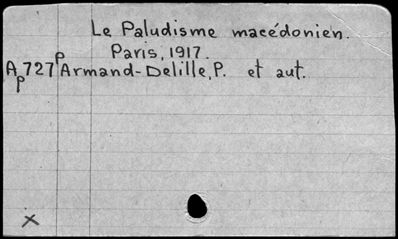 Le Paludisme macédonien.
Paris, 1917.
Ap727p Armand-Delille, P. et aut.
X